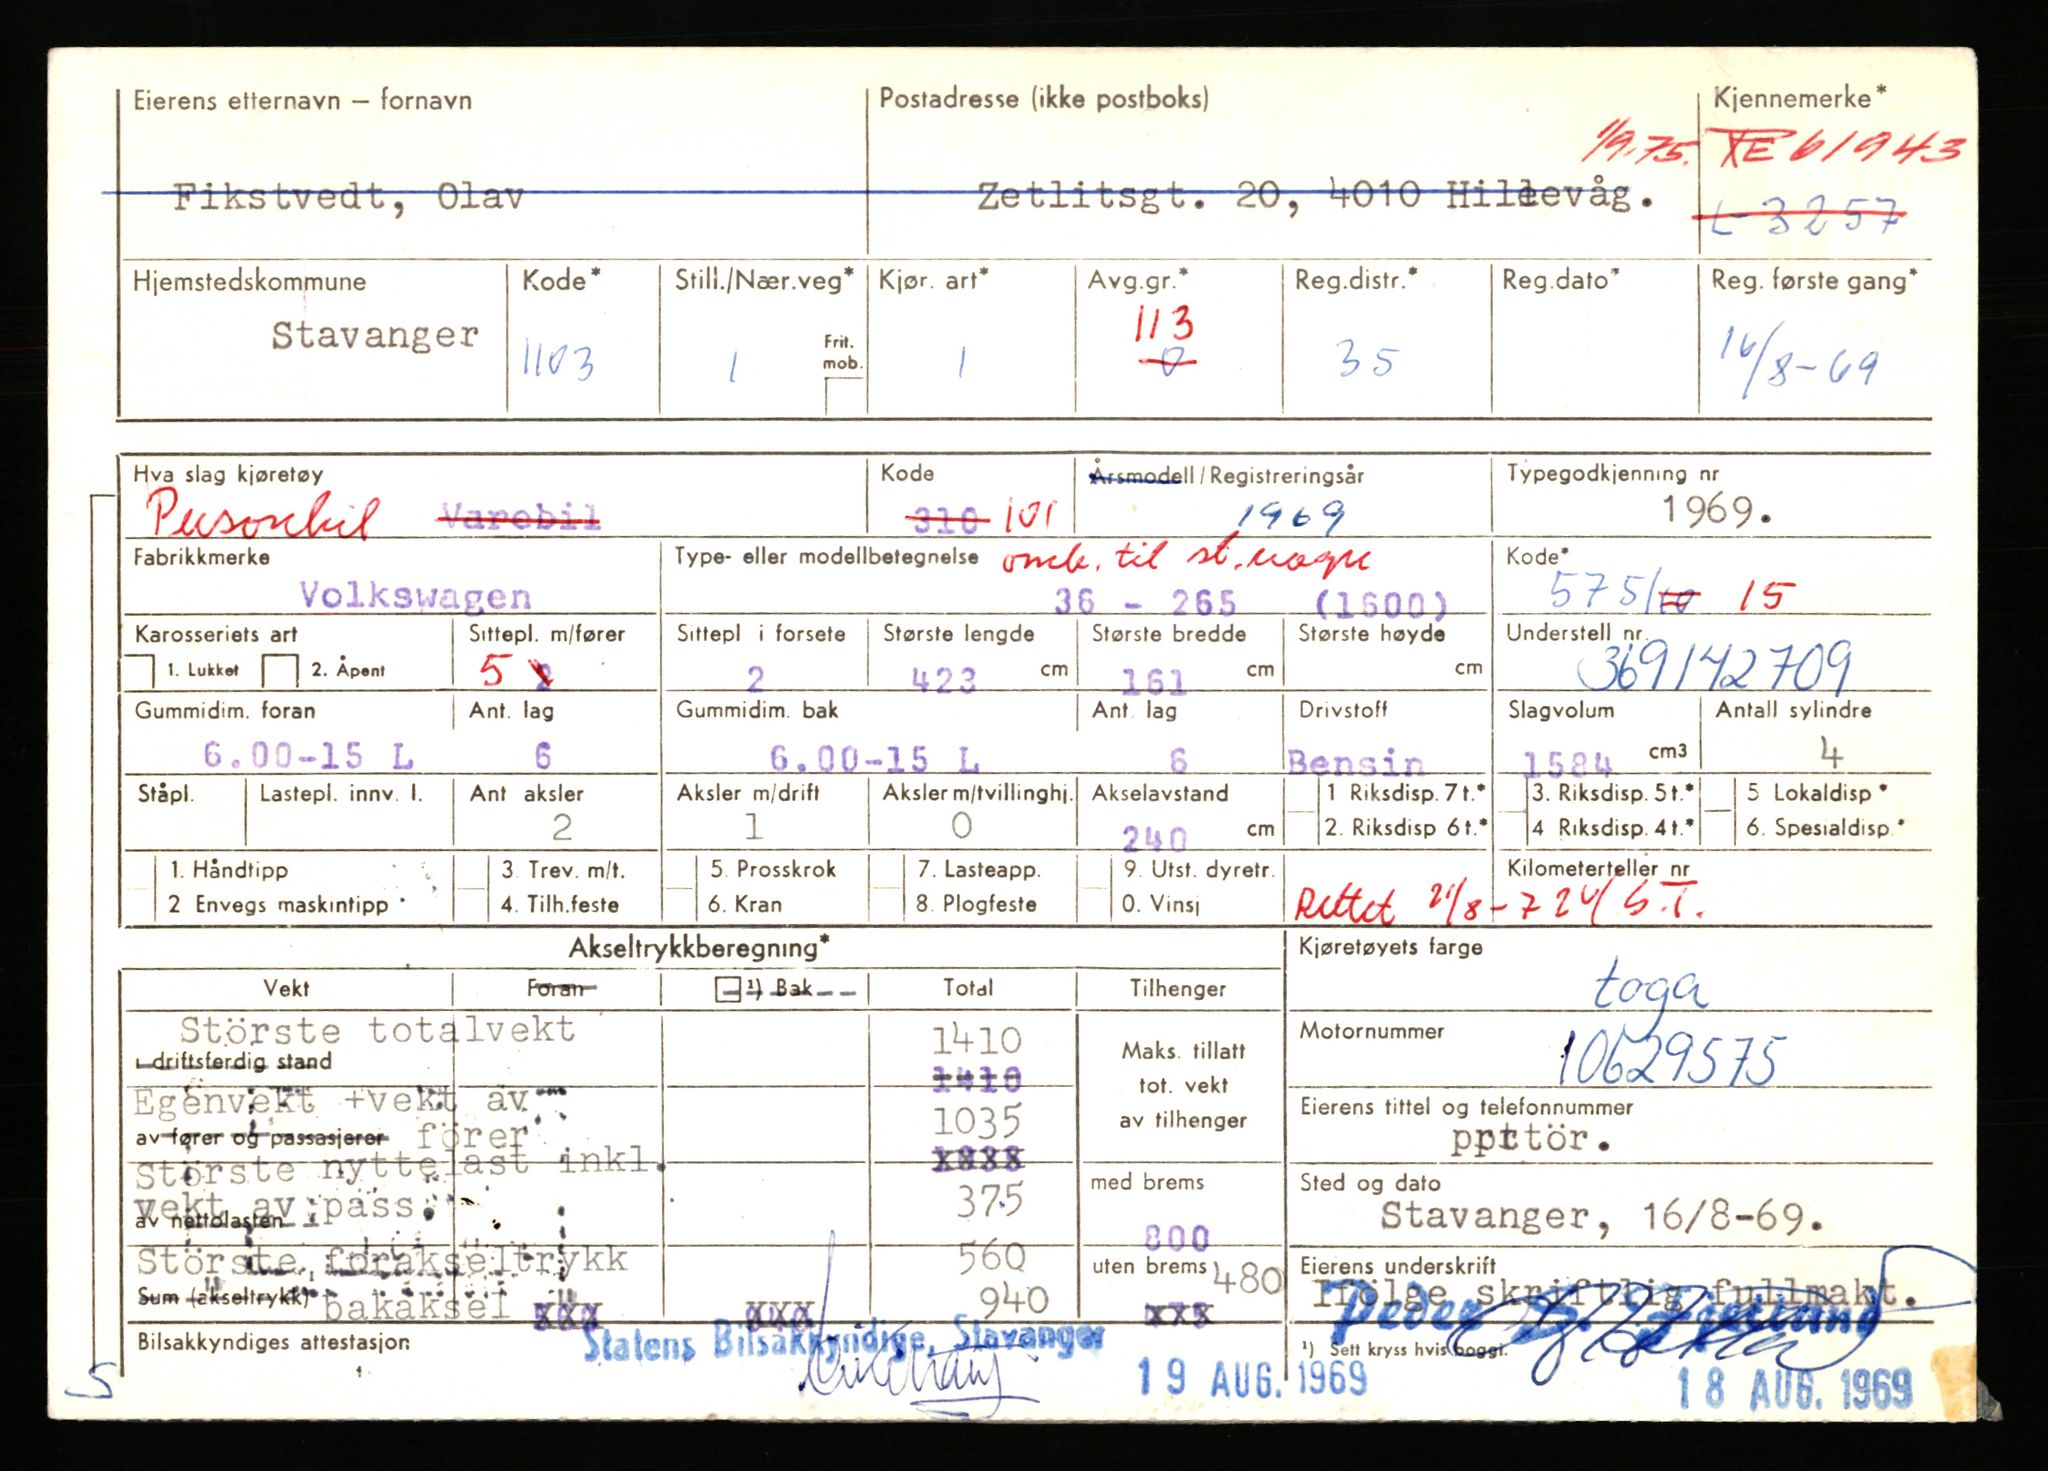 Eierens etternavn – fornavn Postadresse (ikke postboks) Kjennemerke*
1/9.75. XE 61943
Fikstvedt, Olav Zetlitsgt. 20, 4010 Hillevåg.
L-3257
Hjemstedskommune Kode* Still./Nær.veg* Kjør. art* Avg.gr.* Reg.distr.* Reg.dato* Reg. første gang*
113
Stavanger 1103 1 Frit. mob. 1 0 35 16/8-69
Hva slag kjøretøy Kode Årsmodell/Registreringsår Typegodkjenning nr
Personbil Varebil 310 101 1969 1969.
Fabrikkmerke Type- eller modellbetegnelse omb. til st.vogn Kode*
Volkswagen 36 - 265 (1600) 575/10 15
Karosseriets art Sittepl. m/fører Sittepl i forsete Største lengde Største bredde Største høyde Understell nr.
1. Lukket 2. Åpent 5 2 2 423 cm 161 cm cm 369142709
Gummidim. foran Ant. lag Gummidim. bak Ant. lag Drivstoff Slagvolum Antall sylindre
6.00-15 L 6 6.00-15 L 6 Bensin 1584 cm3 4
Ståpl. Lastepl. innv. l. Ant aksler Aksler m/drift Aksler m/tvillinghj. Akselavstand 1 Riksdisp. 7 t.* 3. Riksdisp. 5 t.* 5 Lokaldisp*
2 1 0 240 cm 2. Riksdisp 6 t.* 4 Riksdisp. 4 t.* 6. Spesialdisp.*
1. Håndtipp 3. Trev. m/t. 5. Prosskrok 7. Lasteapp. 9. Utst. dyretr. Kilometerteller nr
2 Envegs maskintipp 4. Tilh.feste 6. Kran 8. Plogfeste 0. Vinsj Rettet 21/8-72 S.T.
Akseltrykkberegning* Kjøretøyets farge
Vekt Foran ¹) Bak Total Tilhenger toga
Störste totalvekt 1410 Motornummer
i driftsferdig stand 1410 Maks. tillatt tot. vekt av tilhenger 10629575
Egenvekt +vekt av 1035 Eierens tittel og telefonnummer
av fører og passasjerer förer
Störste nyttelast inkl. med brems Sted og dato
vekt av pass. 375 Stavanger, 16/8-69.
av nettolasten 800
Störste forakseltrykk 560 uten brems 480 Eierens underskrift
Sum (akseltrykk) bakaksel 940 Ifölge skriftlig fullmakt.
Bilsakkyndiges attestasjon Statens Bilsakkyndige, Stavanger ¹) Sett kryss hvis boggi.
19 AUG. 1969 18 AUG. 1969
S